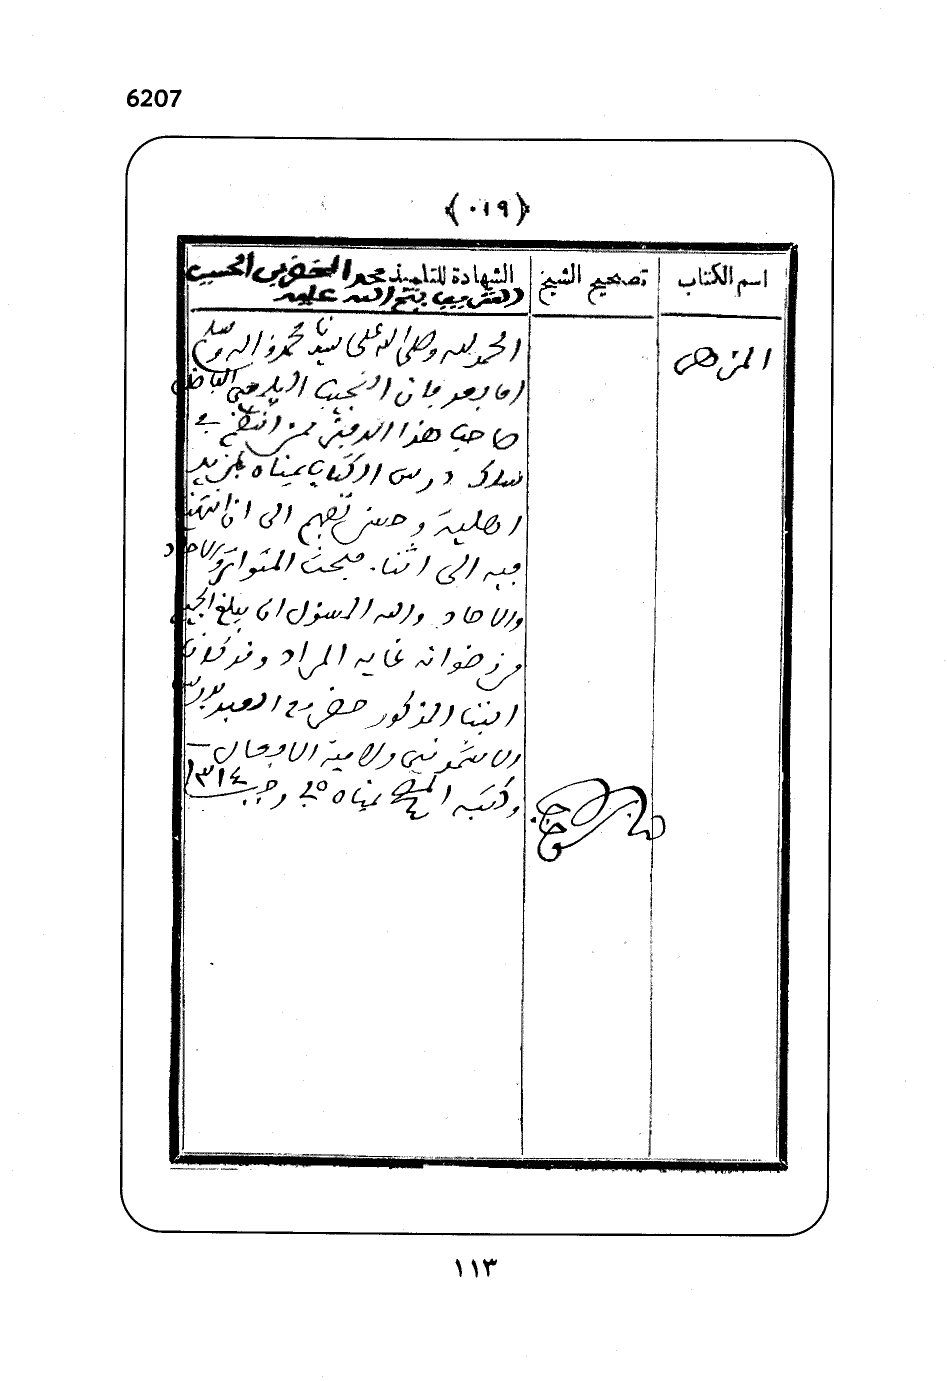 6207
﴿٠١٩﴾
اسم الكتاب
تصحيح الشيخ
الشهادة للتلميذ محمد الخضر بن الحسين
الشريف فتح الله عليه
المزهر
الحمد لله وصلى الله على سيدنا محمد وآله وسلم
اما بعد فان النجيب البارع الفاضل
صاحب هذا الدفتر ممن انتظم في
سلك درس الكتاب يمناه بمزيد
اهلية وحسن تفهم الى ان انتهينا
فيه الى اثناء مبحث المتواتر والاحاد
والاحاد والله المسؤل ان يبلغ الجميع
من رضوانه غاية المراد وقد كان
ابننا المذكور حضر مع العبد درس
الاشموني ولامية الافعال
وكتبه يمناه في رجب ١٣١٤
١١٣